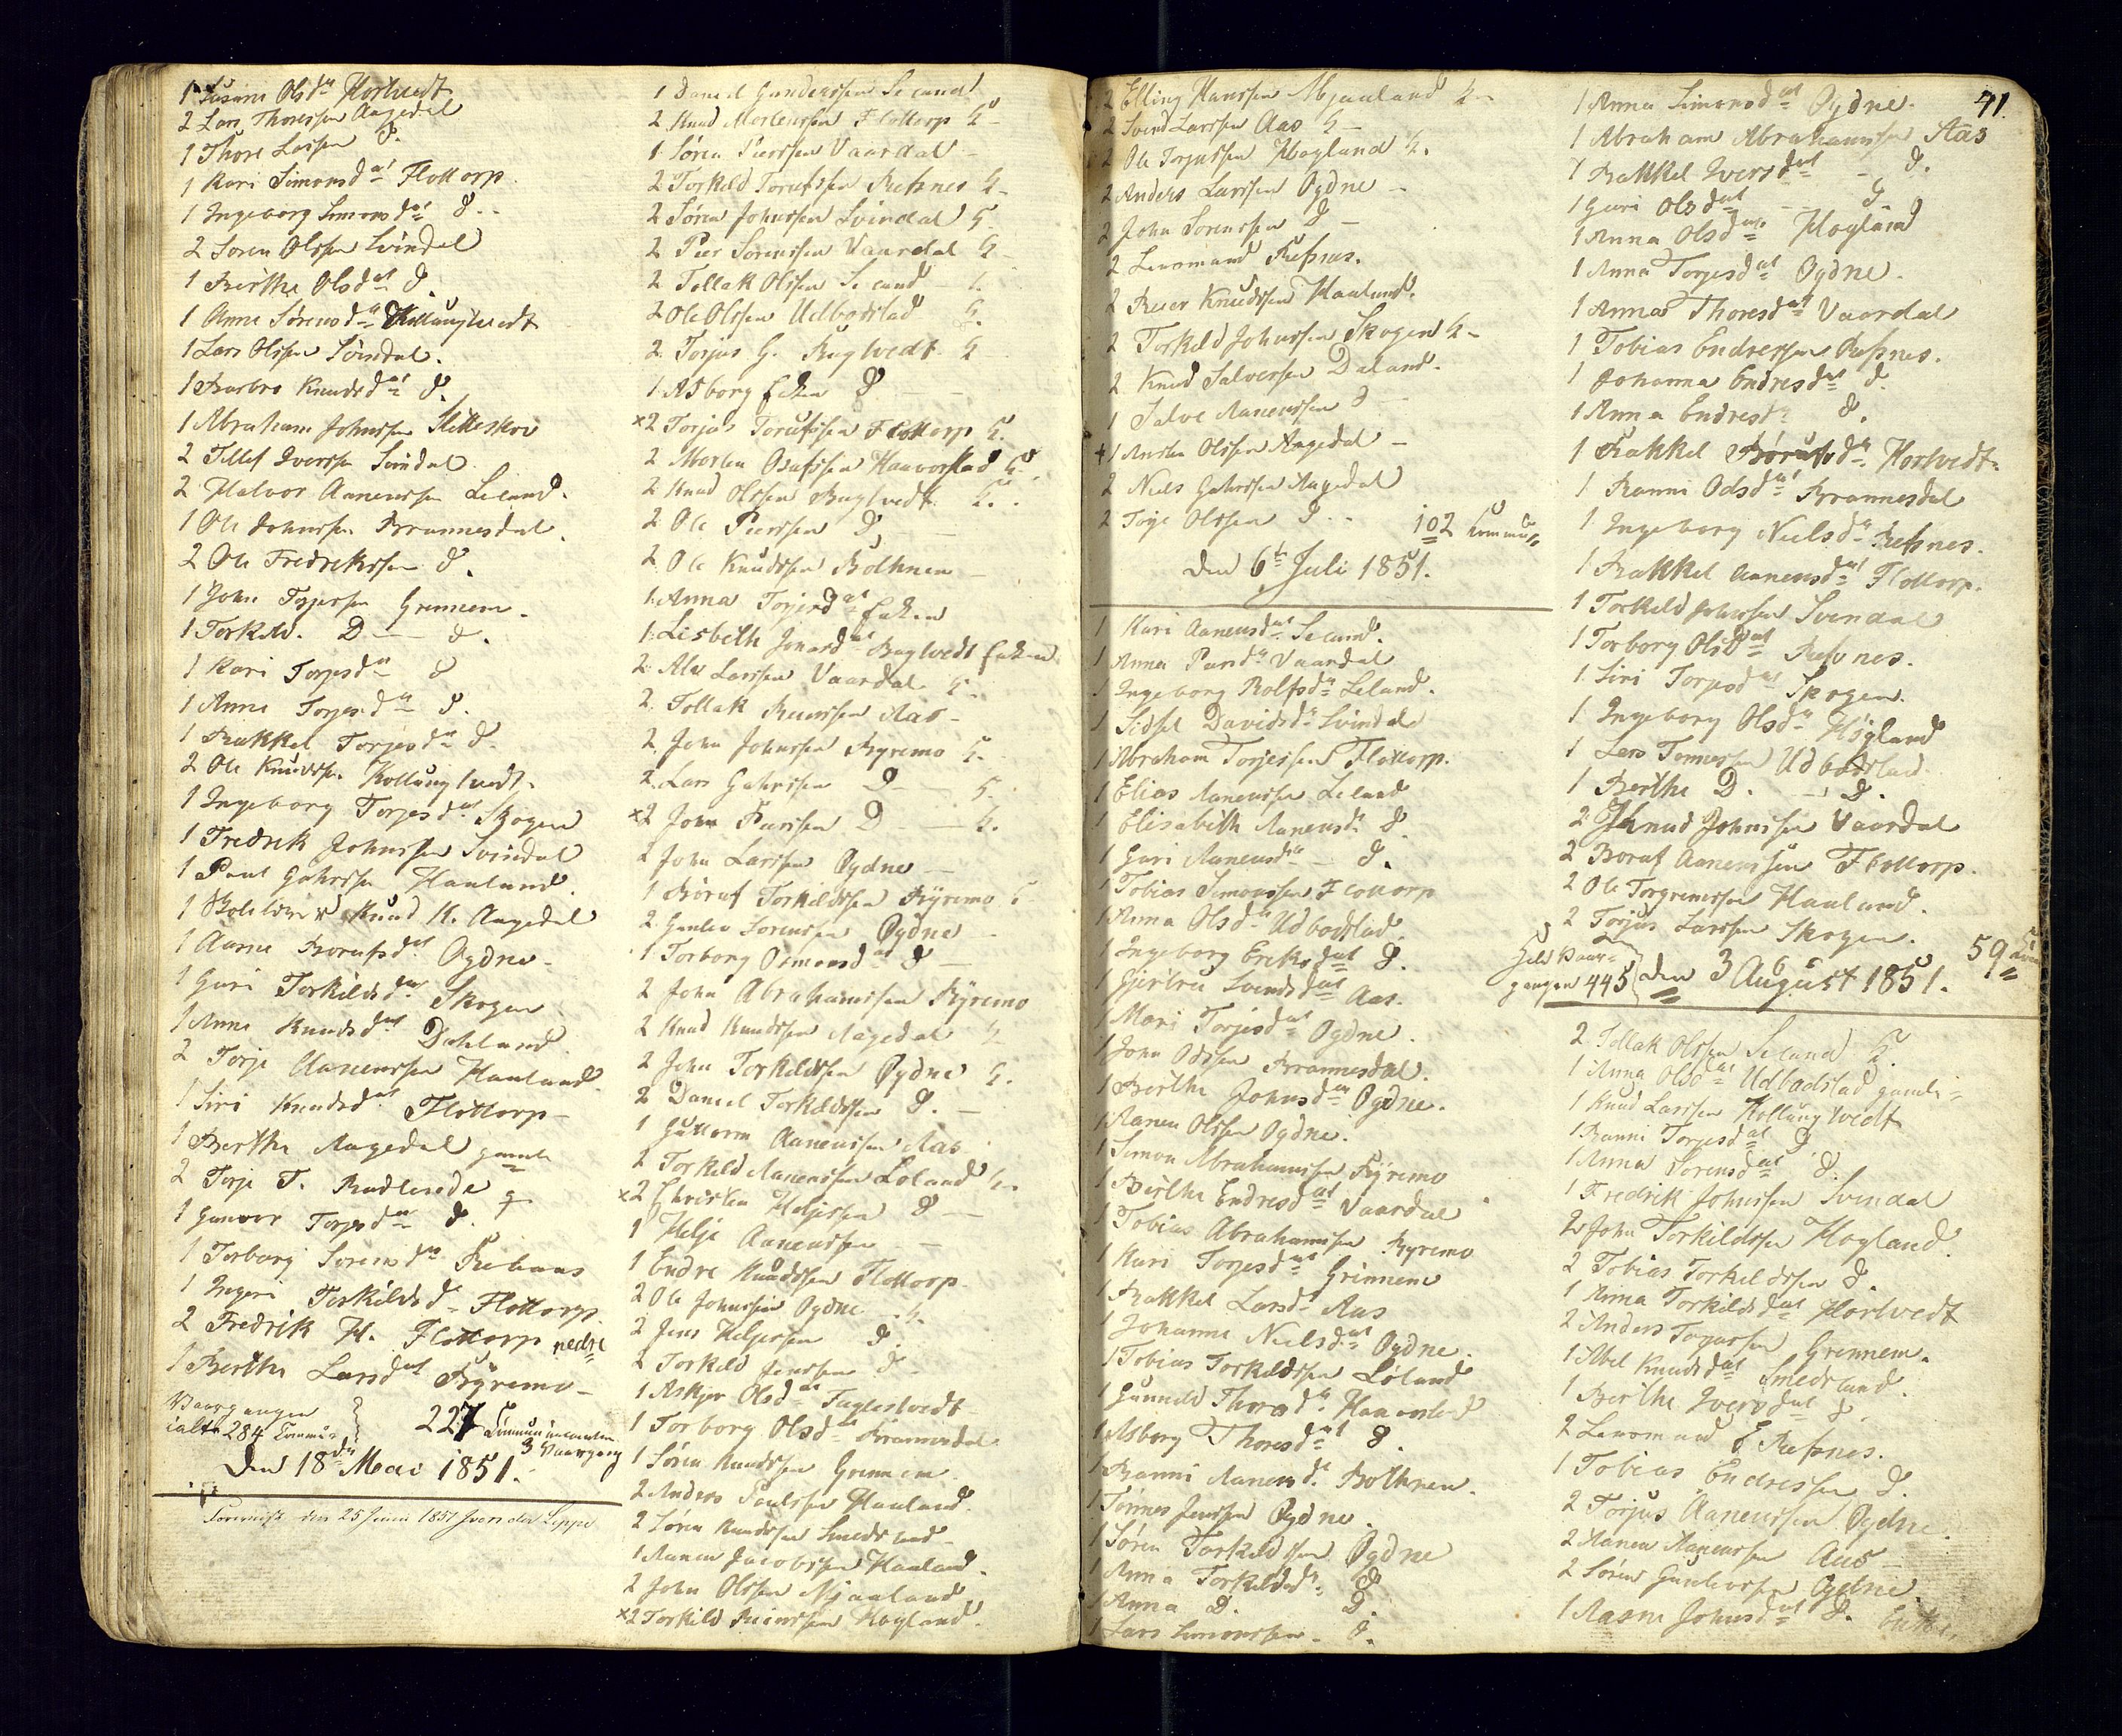 1 Susanne Olsdtr Hortvedt
2 Lars Thoressen Aagedal
1 Thore Larsen D.
1 Kari Simonsdat Flottorp.
1 Ingeborg Simonsdat D.
2 Soren Olssen Svindal
1 Berthe Olsdat D.
1 Anne Sørensdtr Kollungtvedt
1 Lars Olssen Svindal.
1 Barbro Knudsdat D.
1 Abraham Johnssen
2 Tellef Iverssen Svindal
2 Halvor Aanenssen Leland.
1 Ole Johnssen Brannesdal.
2 Ole Fredrikssen D.
1 John Torjessen Grennem.
1 Torkild D — D.
1 Kari Torjesdtr D
1 Anne Torjesdtr D.
1 Rakkel Torjesdtr D.
2 Ole Knudssen Kollungtvedt.
1 Ingeborg Torjesdat Skogen
1 Fredrik Johnssen Svindal
1 Paul Gahrssen Haaland.
1 Knud K. Aagedal
1 Aasne Borufsdat Øydne
1 Guri Torkildsdat Skogen
1 Anne Knudsdat Dahland
2 Torje Aanenssen Haaland
1 Siri Knudsdat Flottorp
1 Berthe Aagedal gamle
2 Torje T.
1 Gunvor Torjesdtr D.
1 Torborg Sorensdtr
1 Ingeri Torkildsd. Flottorp
2 Fredrik H. Flottorp nedre
1 Berthe Larsdat Byremo
Vaargangen
ialt 284 Commun
227 Communicanter
3 Vaargang
Den 18de Mai 1851.
den 25 Juni 1851
1 Daniel Gunderssen Seland
2 Knud Mortenssen Flottorp G
1 Søren Peerssen Vaardal
2 Torkild Torufssen Refsnes G
2 Søren Johnssen Svindal G.
2 Peer Sørenssen Vaardal G
2 Tellak Olssen Seland
2 Ole Olssen Udbodstad G.
2 Torjus G. Bugtvedt G
1 Asborg Enken D
x2 Torjus Torufssen Flottorp G.
2 Morten Osufssen Haaverstad G
2 Knud Olssen Bugtvedt G.
2 Ole Peerssen D.
2 Ole Knudssen Bothnen
1 Anna Torjesdat Enken
1 Lisbeth Jonasdat Bugtvedt Enken
2 Alv Larssen Vaardal G.
2 Tellak Reerssen Aas
2 John Johnssen Byremo G.
2 Lars Gahrssen D G.
x2 John Peerssen D G.
2 John Larssen Øydne
1 Boruf Torkildssen Byremo G
2 Gunlev Sorenssen Øydne
1 Torborg Osmonsdat D
2 John Abrahamssen Byremo
2 Knud Knudssen Aagedal G
2 John Torkildssen Øydne G.
2 Daniel Torkildssen D.
1 Guttorm Aanenssen Aas
2 Torkild Aanenssen Loland G.
x2 Christen Heljessen D
1 Helje Aanenssen
1 Endre Knudssen Flottorp
2 Ole Johnssen Øydne G.
2 Jens Heljessen D.
2 Torkild Jenssen D
1 Askjer Olsdat Fuglestvedt
1 Torborg Olsdat Brannesdal
1 Søren Knudssen Grennem
2 Anders Paulssen Haaland.
2 Søren Knudssen Smedsland
1 Aanen Jacobssen Haaland.
2 John Olssen Mjaaland
x2 Torkild Reierssen Hogland
2 Elling Hanssen Mjaaland G
2 Svend Larssen Aas G
2 Ole Torjussen Hogland G.
2 Anders Larssen Øydne
2 John Sorenssen D
2 Lensmand Refsnes.
2 Reier Knudssen Haaland.
2 Torkild Johnssen Skogen G
2 Knud Salvessen Daland.
1 Salve Aanenssen D
+1 Aanen Olssen Aagedal
2 Niels Gahrssen Aagedal
2 Tøge Olssen D
102 Commun
Den 6te Juli 1851.
1 Kari Aanensdat Seland.
1 Anna Peersdtr Vaardal
1 Ingeborg Rolfsdtr Leland.
1 Sidsel Davidsdtr Svindal
1 Abraham Torjessen Flottorp.
1 Elias Aanenssen Leland
1 Elisabeth Aanensdtr D.
1 Guri Aanensdtr D.
1 Tobias Simonssen Flottorp
1 Anna Olsdtr Udbodstad
1 Ingeborg Eriksdat D.
1 Gjertru Svendsdat Aas.
1 Mari Torjesdat Øydne.
1 John Odssen Brannesdal.
1 Berthe Johnsdtr Øydne.
1 Aanen Olssen Øydne.
1 Simon Abrahamssen Byremo
1 Berthe Endresdat Vaardal
1 Tobias Abrahamssen Byremo
1 Kari Torjesdat Grinnem
1 Rakkel Larsdtr Aas
1 Johanne Nielsdat Øydne.
1 Tobias Torkildssen Loland
1 Gunneld Thoresdtr Haaverstad
1 Asborg Thoresdat D.
1 Ranni Aanensdtr Bothnen.
1 Tønnes Jenssen Øydne.
1 Søren Torkildssen Øydne
1 Anna Torkildsdtr D
1 Anna D. D.
1 Lars Simonssen D.
41.
1 Anna Simonsdat Øydne.
1 Abraham Abrahamssen Aas
1 Rakkel Iversdat D.
1 Guri Olsdat D.
1 Anna Olsdat Hogland
1 Anna Torjesdat Øydne.
1 Anna Thoresdat Vaardal
1 Tobias Endressen Refsnes.
1 Johanna Endresdat D.
1 Anna Endresdtr D.
1 Rakkel Børufsdtr Hortvedt
1 Ranni Odsdat Brannesdal
1 Ingeborg Nielsdtr Refsnes.
1 Rakkel Aanensdat Flottorp.
1 Torkild Johnssen Svindal
1 Torborg Olsdat Refsnes.
1 Siri Torjesdat Skogen.
1 Ingeborg Olsdtr Høgland
1 Lars Tomessen Udbodstad
1 Berthe D. D.
2 Knud Johnssen Vaardal
2 Boruf Aanenssen Flottorp.
2 Ole Torgrimssen Haaland.
2 Torjus Larssen Skogen.
59 Com
gangen 445
den 3 August 1851.
2 Tellak Olssen Seland G.
1 Anna Olsdat Udbodstad gamle
1 Knud Larssen Kollungtvedt
1 Ranni Torjesdat D
1 Anna Sorensdat D.
1 Fredrik Johnssen Svindal
2 John Torkildssen Hogland.
2 Tobias Torkildssen D.
1 Anna Torkildsdat Hortvedt
2 Anders Torjussen Grennem.
1 Abel Knudsdat Smedsland.
1 Berthe Iversdat D.
2 Lensmand E Refsnes.
1 Tobias Endressen D.
2 Torjus Aanenssen Øydne.
2 Aanen Aanenssen Aas
2 Sören Gunlevssen Øydne.
1 Aasne Johnsdat D. Enke.